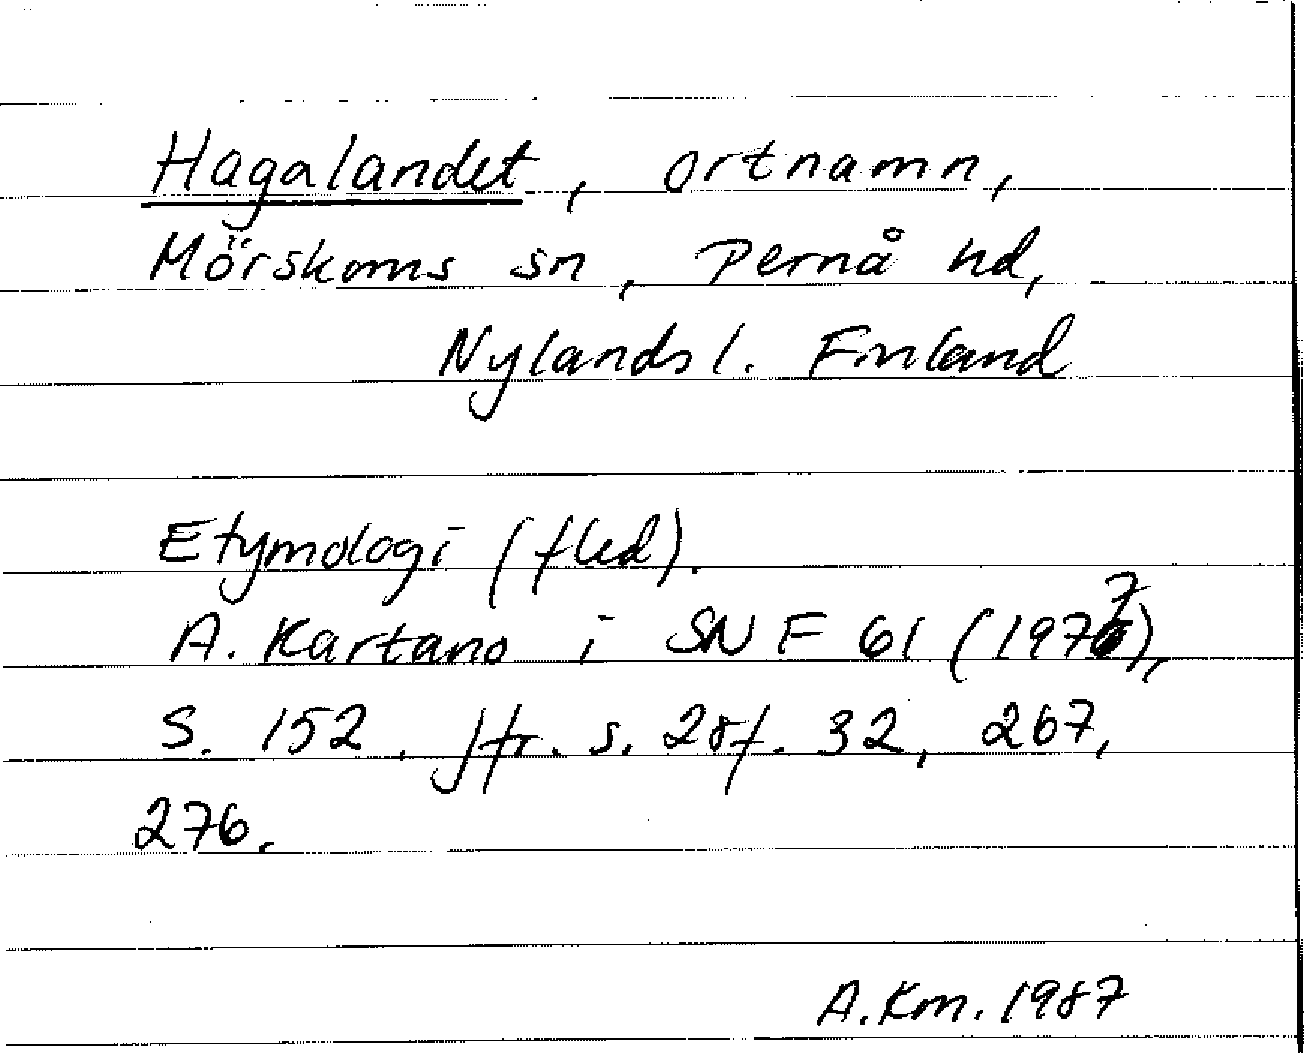 Hagalandet, ortnamn,
Mörskoms sn, Pernå hd,
Nylands l. Finland
Etymologi (fled).
A. Kartano i SNF 61 (1977),
S. 152. Jfr. s. 28f. 32, 267,
276.
A.Km. 1987